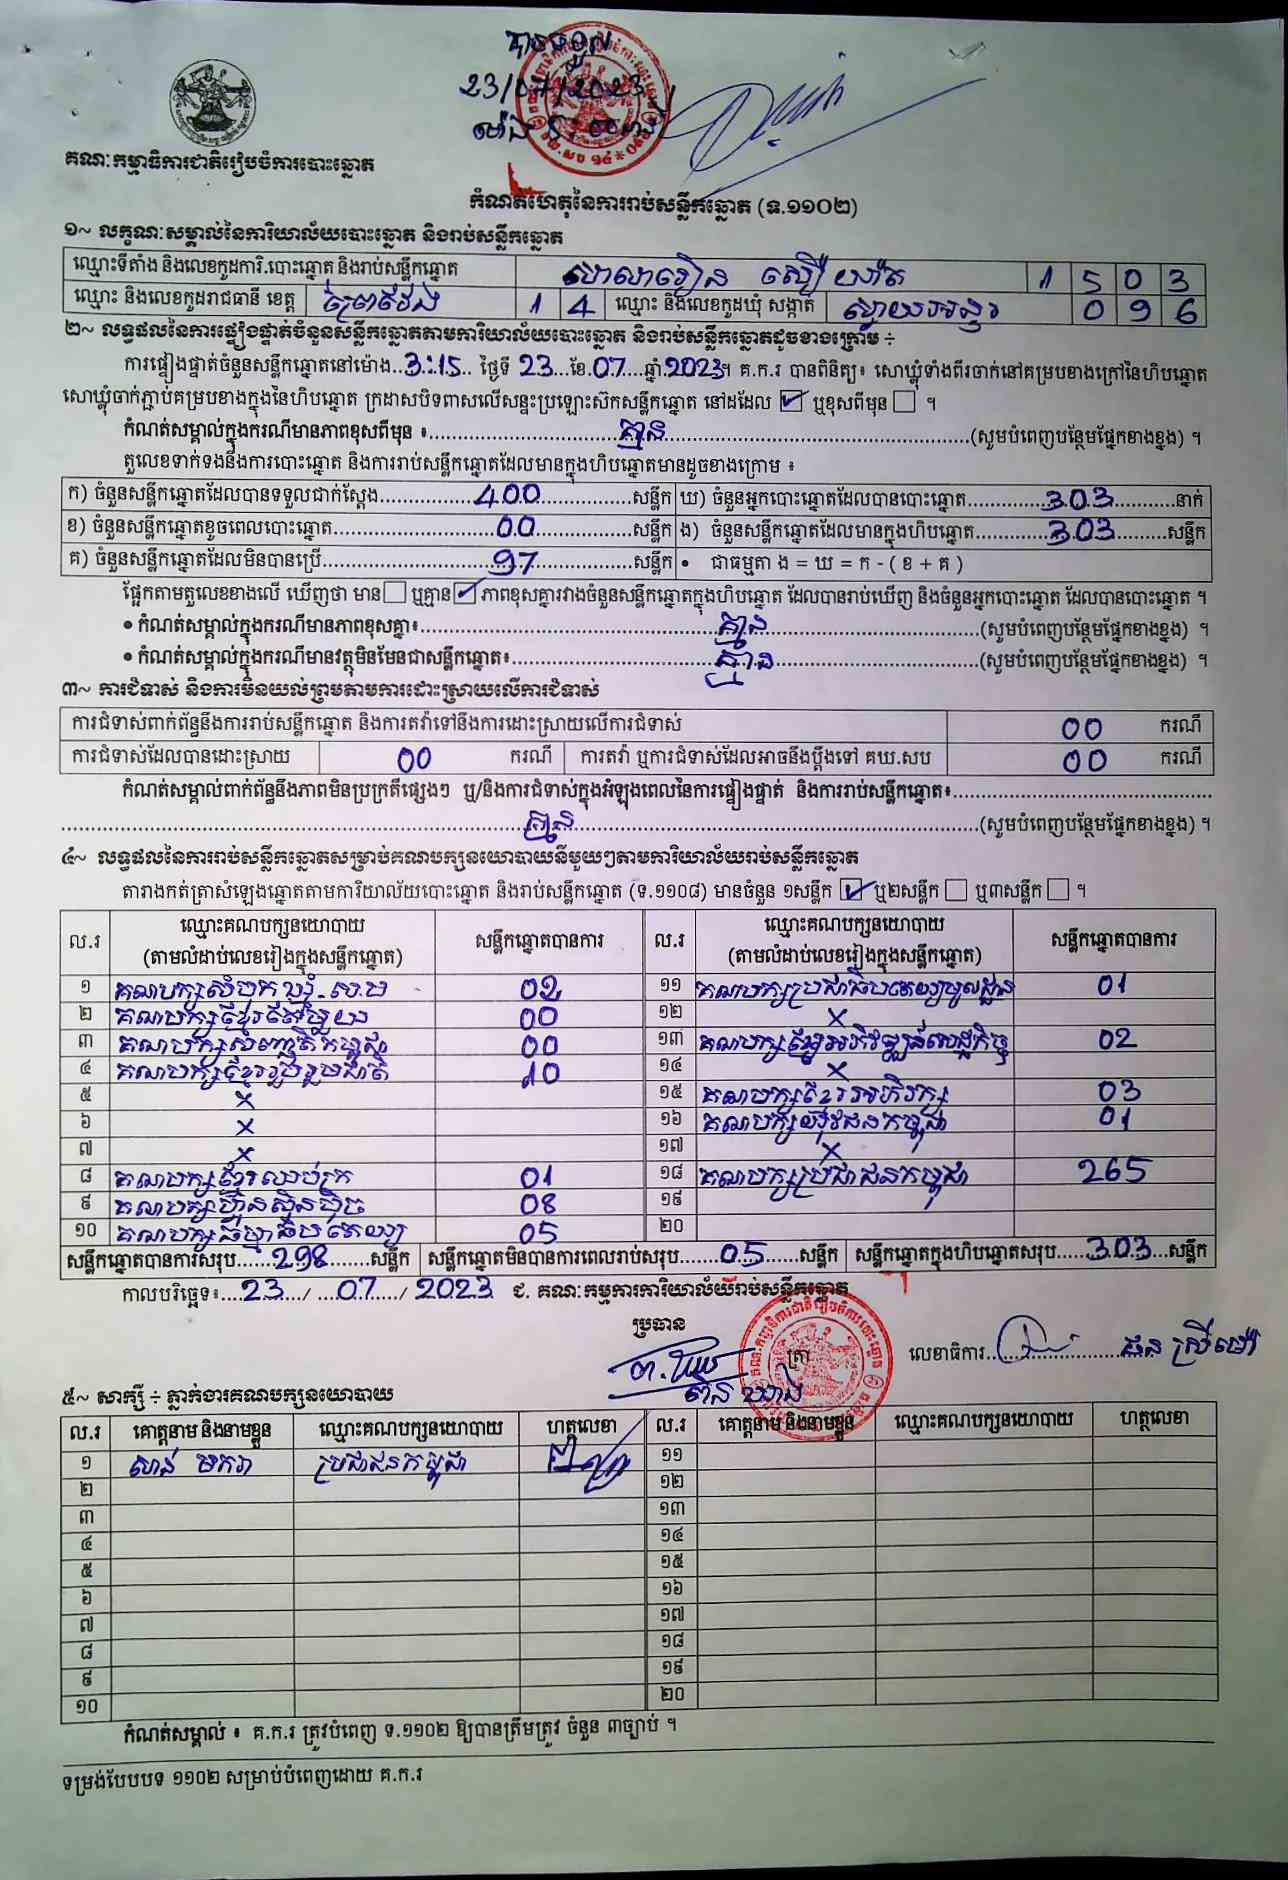 បានទទួល
23/07/2023
គណៈកម្មាធិការជាតិរៀបចំការបោះឆ្នោត
កំណត់ហេតុនៃការរាប់សន្លឹកឆ្នោត (ទ.១១០២)
១~ លក្ខណៈសម្គាល់នៃការិយាល័យបោះឆ្នោត និងរាប់សន្លឹកឆ្នោត
ឈ្មោះទីតាំង និងលេខកូដការិ.បោះឆ្នោត និងរាប់សន្លឹកឆ្នោត សាលារៀន 1 5 0 3
ឈ្មោះ និងលេខកូដរាជធានី ខេត្ត ព្រៃវែង 1 4 ឈ្មោះ និងលេខកូដឃុំ សង្កាត់ ស្វាយអន្ទរ 0 9 6
២~ លទ្ធផលនៃការផ្ទៀងផ្ទាត់ចំនួនសន្លឹកឆ្នោតតាមការិយាល័យបោះឆ្នោត និងរាប់សន្លឹកឆ្នោតដូចខាងក្រោម ÷
ការផ្ទៀងផ្ទាត់ចំនួនសន្លឹកឆ្នោតនៅម៉ោង..3:15.. ថ្ងៃទី 23...ខែ.07....ឆ្នាំ.2023។ គ.ក.រ បានពិនិត្យ៖ សោឃ្លុំទាំងពីរចាក់នៅគម្របខាងក្រៅនៃហិបឆ្នោត
សោឃ្លុំចាក់ភ្ជាប់គម្របខាងក្នុងនៃហិបឆ្នោត ក្រដាសបិទពាសលើសន្ទះប្រឡោះស៊កសន្លឹកឆ្នោត នៅដដែល ☑ ឬខុសពីមុន ☐ ។
កំណត់សម្គាល់ក្នុងករណីមានភាពខុសពីមុន ៖....គ្មាន....(សូមបំពេញបន្ថែមផ្នែកខាងខ្នង) ។
តួលេខទាក់ទងនឹងការបោះឆ្នោត និងការរាប់សន្លឹកឆ្នោតដែលមានក្នុងហិបឆ្នោតមានដូចខាងក្រោម ៖
ក) ចំនួនសន្លឹកឆ្នោតដែលបានទទួលជាក់ស្តែង....400....សន្លឹក ឃ) ចំនួនអ្នកបោះឆ្នោតដែលបានបោះឆ្នោត....303....នាក់
ខ) ចំនួនសន្លឹកឆ្នោតខូចពេលបោះឆ្នោត....00....សន្លឹក ង) ចំនួនសន្លឹកឆ្នោតដែលមានក្នុងហិបឆ្នោត....303....សន្លឹក
គ) ចំនួនសន្លឹកឆ្នោតដែលមិនបានប្រើ....97....សន្លឹក • ជាធម្មតា ង = ឃ = ក - ( ខ + គ )
ផ្អែកតាមតួលេខខាងលើ ឃើញថា មាន ☐ ឬគ្មាន ☑ ភាពខុសគ្នារវាងចំនួនសន្លឹកឆ្នោតក្នុងហិបឆ្នោត ដែលបានរាប់ឃើញ និងចំនួនអ្នកបោះឆ្នោត ដែលបានបោះឆ្នោត ។
• កំណត់សម្គាល់ក្នុងករណីមានភាពខុសគ្នា៖....គ្មាន....(សូមបំពេញបន្ថែមផ្នែកខាងខ្នង) ។
• កំណត់សម្គាល់ក្នុងករណីមានវត្ថុមិនមែនជាសន្លឹកឆ្នោត៖....គ្មាន....(សូមបំពេញបន្ថែមផ្នែកខាងខ្នង) ។
៣~ ការជំទាស់ និងការមិនយល់ព្រមតាមការដោះស្រាយលើការជំទាស់
ការជំទាស់ពាក់ព័ន្ធនឹងការរាប់សន្លឹកឆ្នោត និងការតវ៉ាទៅនឹងការដោះស្រាយលើការជំទាស់ 00 ករណី
ការជំទាស់ដែលបានដោះស្រាយ 00 ករណី ការតវ៉ា ឬការជំទាស់ដែលអាចនឹងប្តឹងទៅ គឃ.សប 00 ករណី
កំណត់សម្គាល់ពាក់ព័ន្ធនឹងភាពមិនប្រក្រតីផ្សេងៗ ឬ/និងការជំទាស់ក្នុងអំឡុងពេលនៃការផ្ទៀងផ្ទាត់ និងការរាប់សន្លឹកឆ្នោត៖....
....គ្មាន....(សូមបំពេញបន្ថែមផ្នែកខាងខ្នង) ។
៤~ លទ្ធផលនៃការរាប់សន្លឹកឆ្នោតសម្រាប់គណបក្សនយោបាយនីមួយៗតាមការិយាល័យរាប់សន្លឹកឆ្នោត
តារាងកត់ត្រាសំឡេងឆ្នោតតាមការិយាល័យបោះឆ្នោត និងរាប់សន្លឹកឆ្នោត (ទ.១១០៨) មានចំនួន ១សន្លឹក ☑ ឬ២សន្លឹក ☐ ឬ៣សន្លឹក ☐ ។
ល.រ ឈ្មោះគណបក្សនយោបាយ (តាមលំដាប់លេខរៀងក្នុងសន្លឹកឆ្នោត) សន្លឹកឆ្នោតបានការ ល.រ ឈ្មោះគណបក្សនយោបាយ (តាមលំដាប់លេខរៀងក្នុងសន្លឹកឆ្នោត) សន្លឹកឆ្នោតបានការ
១ គណបក្សសំបុកឃ្មុំ.ស.ម 02 ១១ គណបក្សប្រជាធិបតេយ្យមូលដ្ឋាន 01
២ គណបក្សខ្មែរតែមួយ 00 ១២ x
៣ គណបក្សសញ្ជាតិកម្ពុជា 00 ១៣ គណបក្សខ្មែរអភិវឌ្ឍន៍សេដ្ឋកិច្ច 02
៤ គណបក្សខ្មែររួបរួមជាតិ 10 ១៤ x
៥ x ១៥ គណបក្សខ្មែរអភិរក្ស 03
៦ x ១៦ គណបក្សយុវជនកម្ពុជា 01
៧ x ១៧ x
៨ គណបក្សខ្មែរឈប់ក្រ 01 ១៨ គណបក្សប្រជាជនកម្ពុជា 265
៩ គណបក្សហ៊្វុនស៊ិនប៉ិច 08 ១៩
១០ គណបក្សធម្មាធិបតេយ្យ 05 ២០
សន្លឹកឆ្នោតបានការសរុប....298....សន្លឹក សន្លឹកឆ្នោតមិនបានការពេលរាប់សរុប....05....សន្លឹក សន្លឹកឆ្នោតក្នុងហិបឆ្នោតសរុប....303...សន្លឹក
កាលបរិច្ឆេទ៖....23..../....07..../ 2023 ជ. គណៈកម្មការការិយាល័យរាប់សន្លឹកឆ្នោត
ប្រធាន
ត្រា លេខាធិការ....ផន ស្រីម៉ៅ
៥~ សាក្សី ÷ ភ្នាក់ងារគណបក្សនយោបាយ
ល.រ គោត្តនាម និងនាមខ្លួន ឈ្មោះគណបក្សនយោបាយ ហត្ថលេខា ល.រ គោត្តនាម និងនាមខ្លួន ឈ្មោះគណបក្សនយោបាយ ហត្ថលេខា
១ សាន់ មករា ប្រជាជនកម្ពុជា ១១
២ ១២
៣ ១៣
៤ ១៤
៥ ១៥
៦ ១៦
៧ ១៧
៨ ១៨
៩ ១៩
១០ ២០
កំណត់សម្គាល់ ៖ គ.ក.រ ត្រូវបំពេញ ទ.១១០២ ឱ្យបានត្រឹមត្រូវ ចំនួន ៣ច្បាប់ ។
ទម្រង់បែបបទ ១១០២ សម្រាប់បំពេញដោយ គ.ក.រ